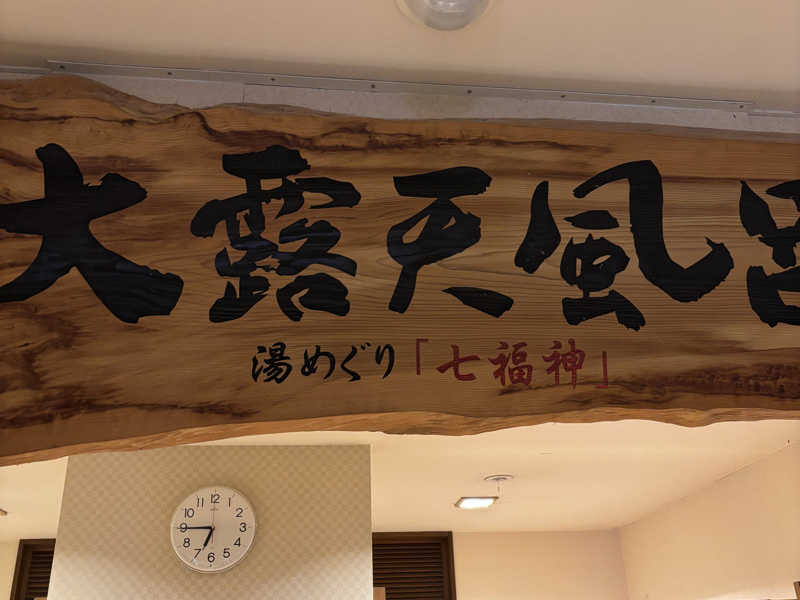 大露天風呂
湯めぐり「七福神」
12
1
2
3
4
5
6
7
8
9
10
11